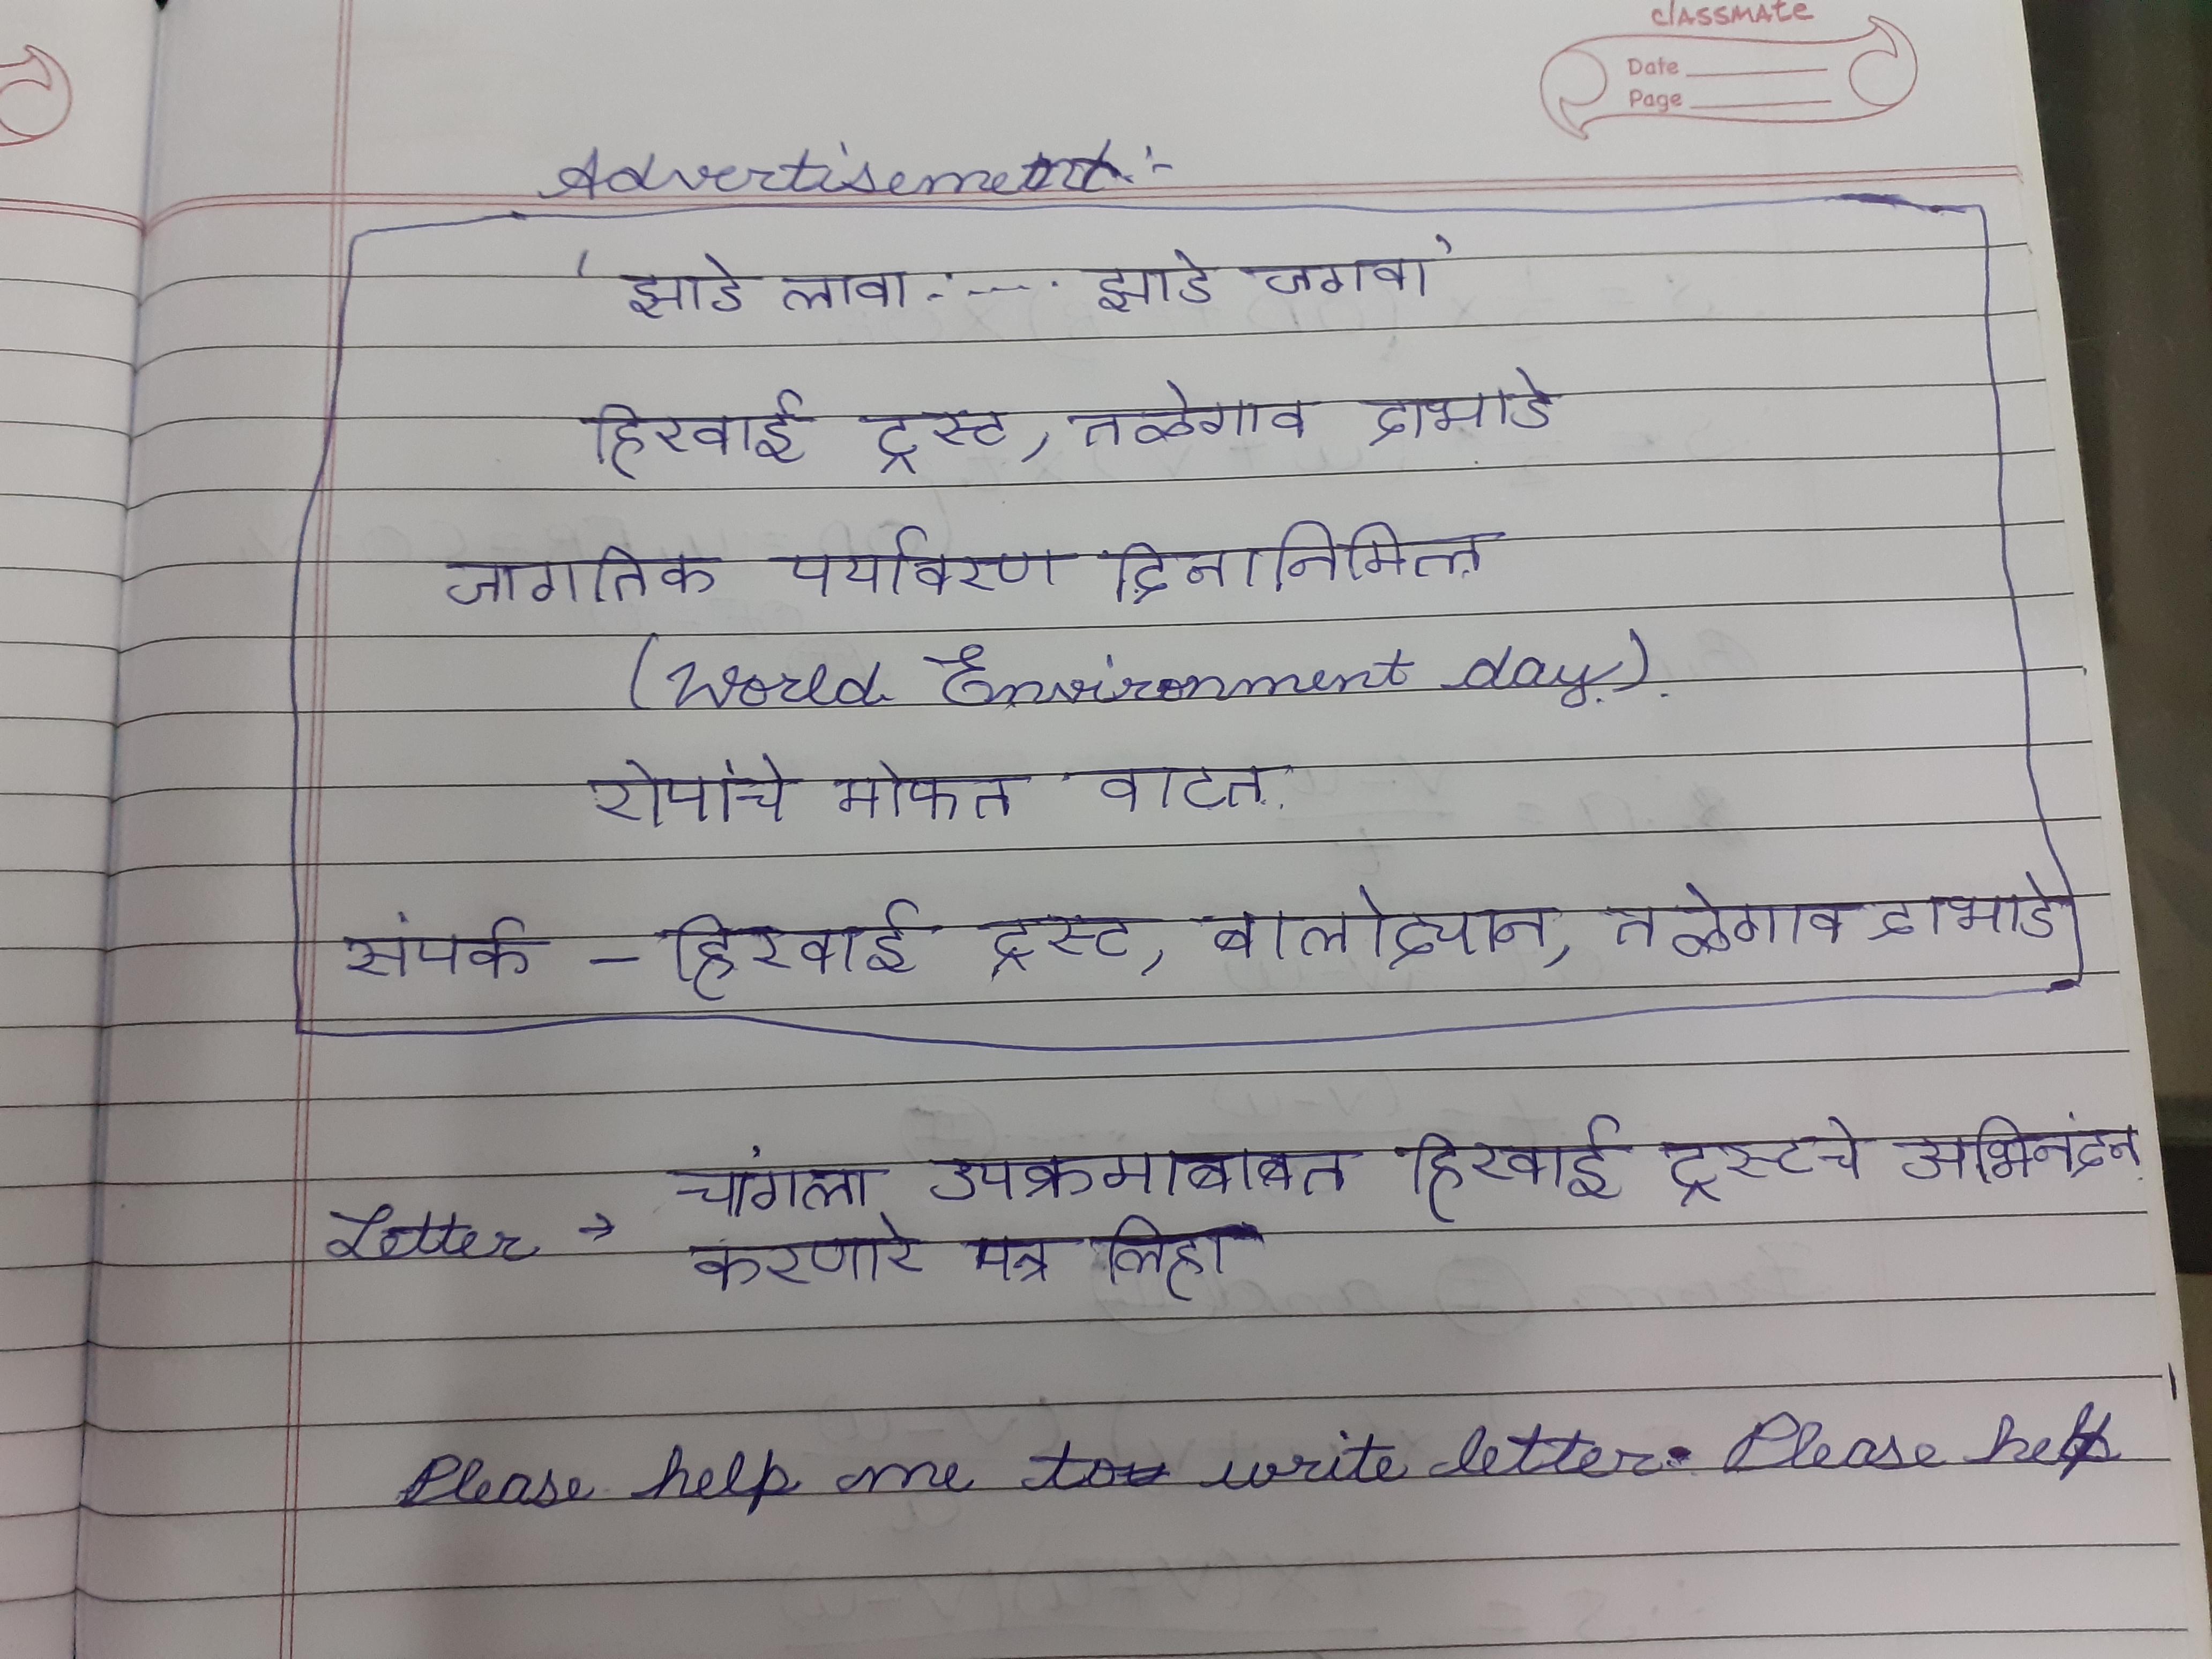 classmate
Date
Page
Advertisement :-
'झाडे लावा ----- झाडे जगवा'
हिरवाई ट्रस्ट, तळेगाव दाभाडे
जागतिक पर्यावरण दिनानिमित्त
(World Environment day).
रोपांचे मोफत वाटत.
संपर्क – हिरवाई ट्रस्ट, बालोद्यान, तळेगाव दाभाडे
चांगला उपक्रमाबाबत हिरवाई ट्रस्टचे अभिनंदन
Letter → करणारे पत्र लिहा
Please help me to write letter. Please help